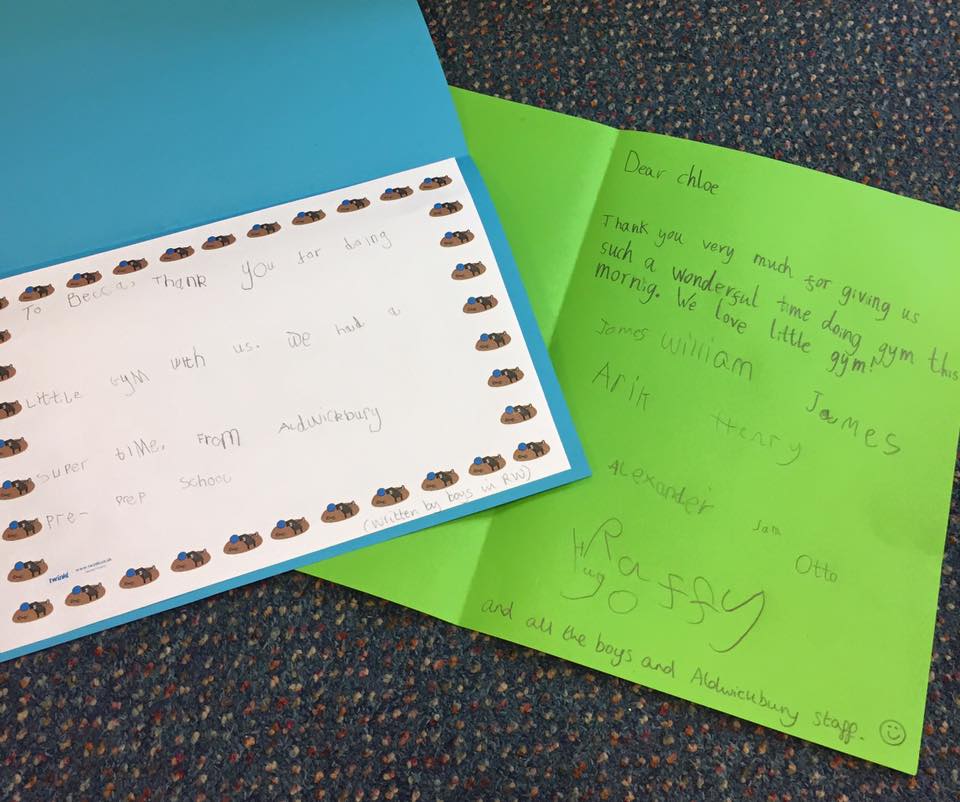 To Becca, Thank you for doing
Little gym with us. We had a
super time. From Aldwickbury
Pre- Prep School
(written by boys in RW)
twinkl www.twinkl.co.uk
Dear chloe
Thank you very much for giving us
such a wonderful time doing gym this
mornig. We love little gym!
James William
James
Arik
Henry
Alexander
Sam
Otto
Raffy
Hugo
and all the boys and Aldwickbury staff. ☺